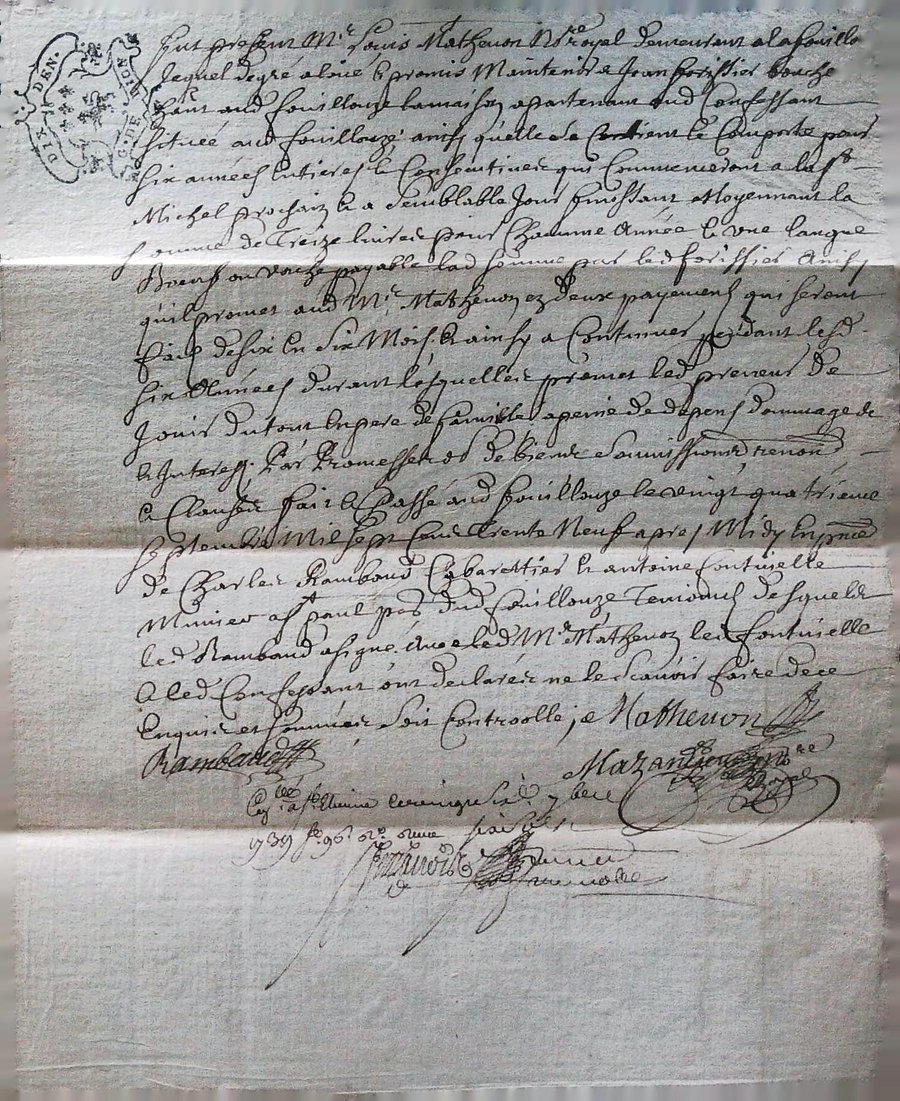 DIX DEN.
G. DE LION
Fut present Mr Louis Mathevon Nre royal demeurant a la fouillo
lequel de gré a loué & promis maintenir a Jean forissier
aud fouillouze la maison apartenant aud Confessant
scituée aud fouillouze, ainsy qu'elle se Contient & Comporte pour
six années Entieres & Consecutives qui Commenceront a la St
Michel prochain & a semblable Jour finissant Moyennant la
somme de Treize livres pour Chacunne Année & une langue
Boeuf ou vache payable lad somme par led forissier Ainsy
qu'il promet aud Mr Mathevon en deux payements qui seront
faits de six en six Mois & ainsy a Continuer pendant lesd
six Années durant lesquelles promet led preneur de
Jouir du tout En pere de famille a peine de depens dommage de
& Interest, Par Promesses de biens soumissions renon
& Clauses fait & Passé aud fouillouze le vingt quatrieme
septembre Mil sept Cents trente Neuf apres Midy En pnce
de Charles Rambaud Cabarettier & antoine fontvielle
Munier a St paul pss dud fouillouze Temoins desquels
led Rambaud a signé Avec led Mr Mathevon led fontvielle
& led Confessant ont declarés ne le Scavoir faire de ce
Enquis et sommés soit Controollé
Mathevon
Rambaud
Mazandieu nore Royal
a St Etienne le vingt six 7bre
1739 fo 96